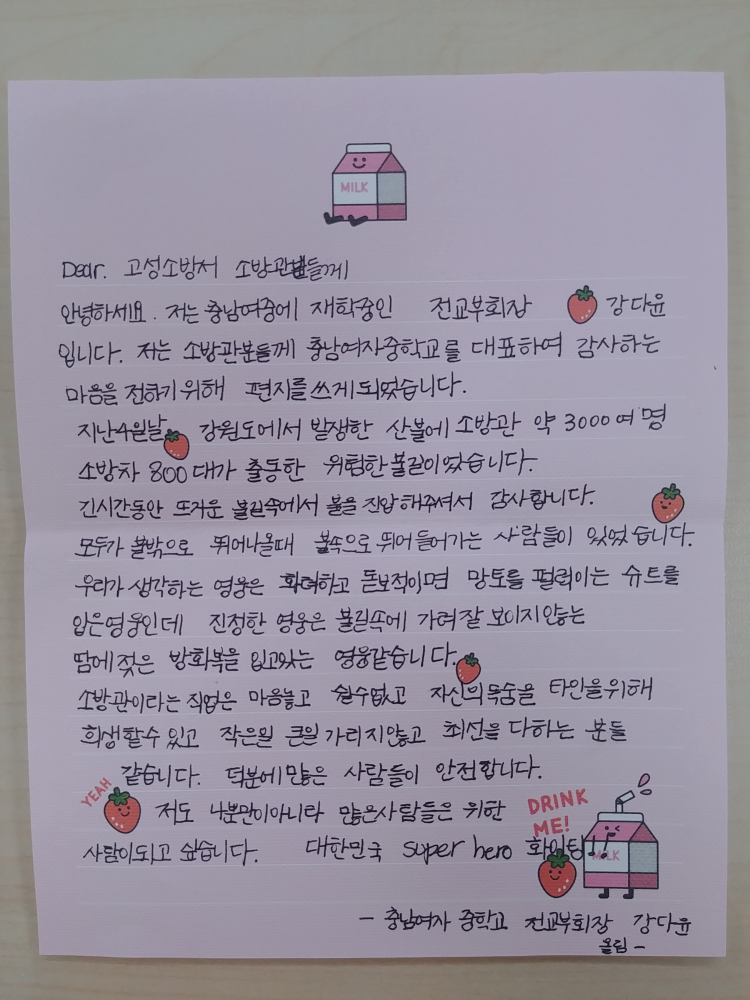 MILK
Dear. 고성소방서 소방관분들께
안녕하세요. 저는 충남여중에 재학중인 전교부회장 강다윤
입니다. 저는 소방관분들께 충남여자중학교를 대표하여 감사하는
마음을 전하기 위해 편지를 쓰게 되었습니다.
지난4월날 강원도에서 발생한 산불에 소방관 약 3000여 명
소방차 800대가 출동한 위험한 불길이었습니다.
긴시간동안 뜨거운 불길속에서 불을 진압해주셔서 감사합니다.
모두가 불밖으로 뛰어나올때 불속으로 뛰어들어가는 사람들이 있었습니다.
우리가 생각하는 영웅은 화려하고 돋보적이며 망토를 펄럭이는 슈트를
입은영웅인데 진정한 영웅은 불길속에 가려 잘 보이지않는
땀에 젖은 방화복을 입고있는 영웅같습니다.
소방관이라는 직업은 마음놓고 쉴수없고 자신의목숨을 타인을위해
희생할수 있고 작은일 큰일 가리지않고 최선을 다하는 분들
같습니다. 덕분에 많은 사람들이 안전합니다.
YEAH
저도 나뿐만이아니라 많은사람들은 위한
DRINK
ME!
사람이되고 싶습니다. 대한민국 super hero 화이팅!!
MILK
- 충남여자 중학교 전교부회장 강다윤
올림 -